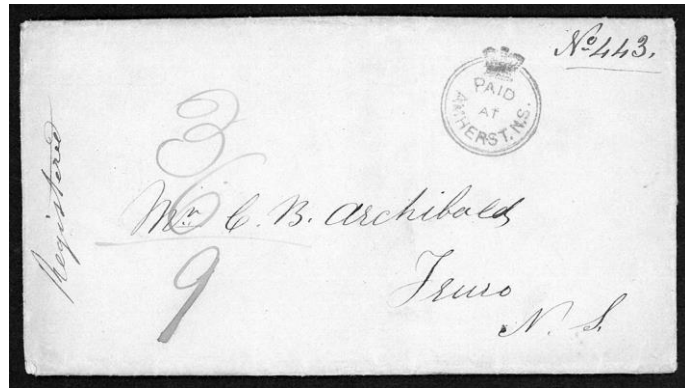 No 443.
PAID
AT
AMHERST. N.S.
Registered
3
6
9
Mr. C. B. Archibald
Truro
N. S.